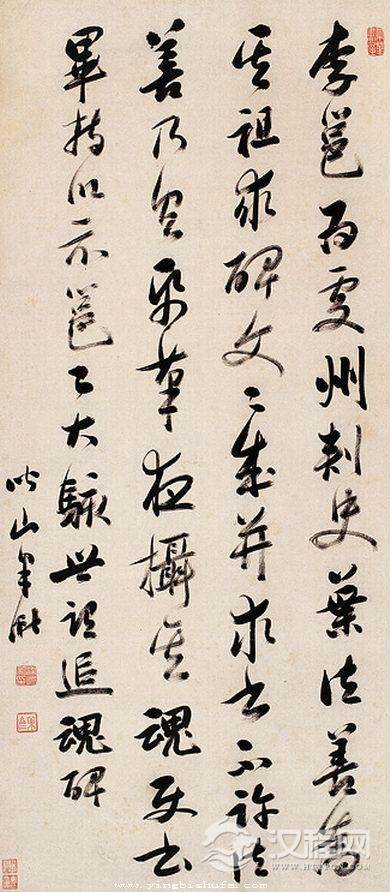 李邕為處州刺史葉法善為
其祖求碑文〻成并求書不許法
善乃具紙筆夜攝其魂使書
畢持以示邕〻大駭世謂追魂碑
山
汉程网
www.yingbishufa.com